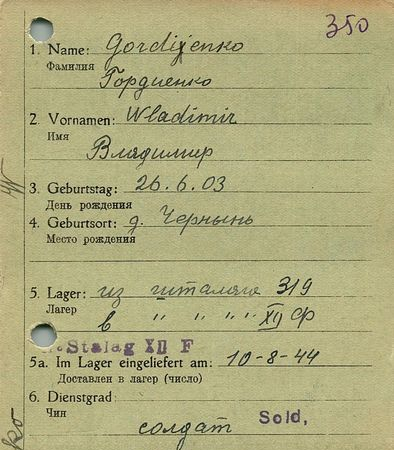 350
1. Name: Gordijenko
Фамилия
Гордиенко
2. Vornamen: Wladimir
Имя
Владимир
3. Geburtstag: 26.6.03
День рождения
4. Geburtsort: д. Чернынь
Место рождения
5. Lager: из шталага 319
Лагер
в " " " " XII Ф
Stalag XII F
5a. Im Lager eingeliefert am: 10-8-44
Доставлен в лагер (число)
6. Dienstgrad:
Чин
солдат Sold.